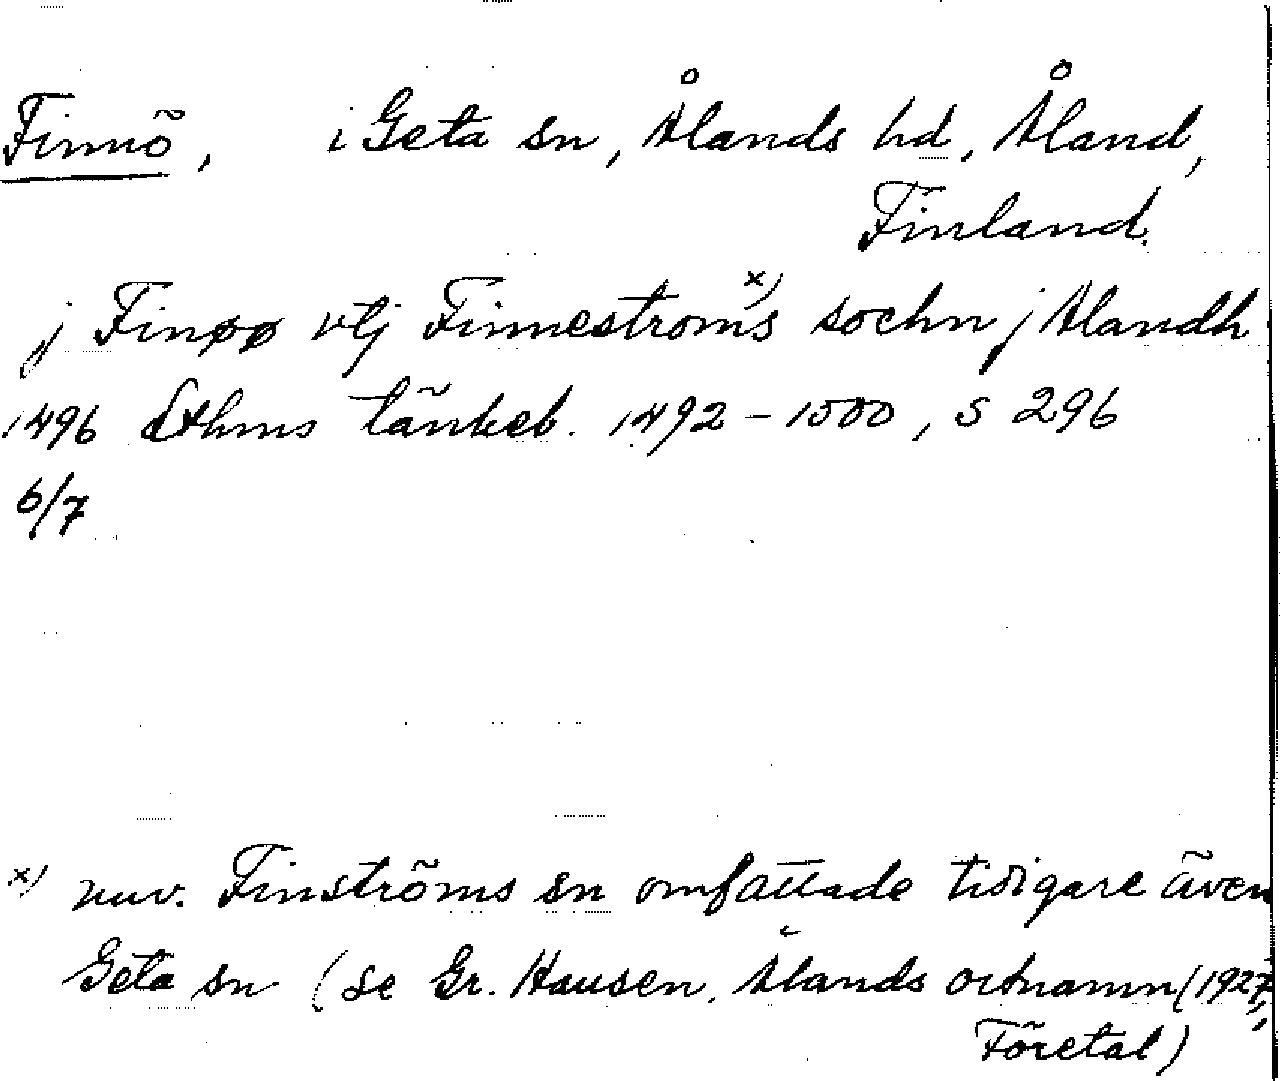 Finnö, i Geta sn, Ålands hd, Åland,
Finland.
j Finøø vtj Finnestroms x) sochn j Alandh
1496 Sthms tänkeb. 1492-1500, s 296
6/7
x) nuv. Finströms sn omfattade tidigare även
Geta sn (se Gr. Hausen, Ålands ortnamn (1927),
Företal)